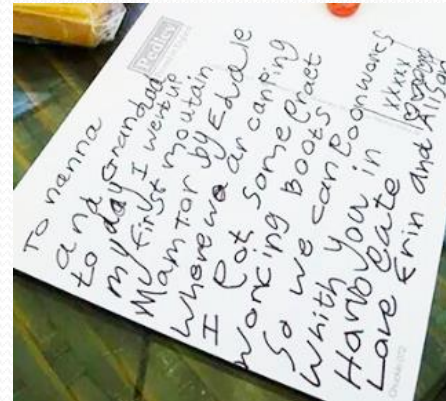 To nanna
and Grandad
to day I went up
my first moutain
Mam Tor by Edale
Where we ar canping
I Pot some Praet
Working Boots
So we can Eoon works
Whith you in
Harbeate
Love Erin and Alison
xxxxx
Pedley